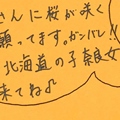 さんに桜が咲く
願ってます。ガンバレ!!
北海道の子奈良女
来てね♪